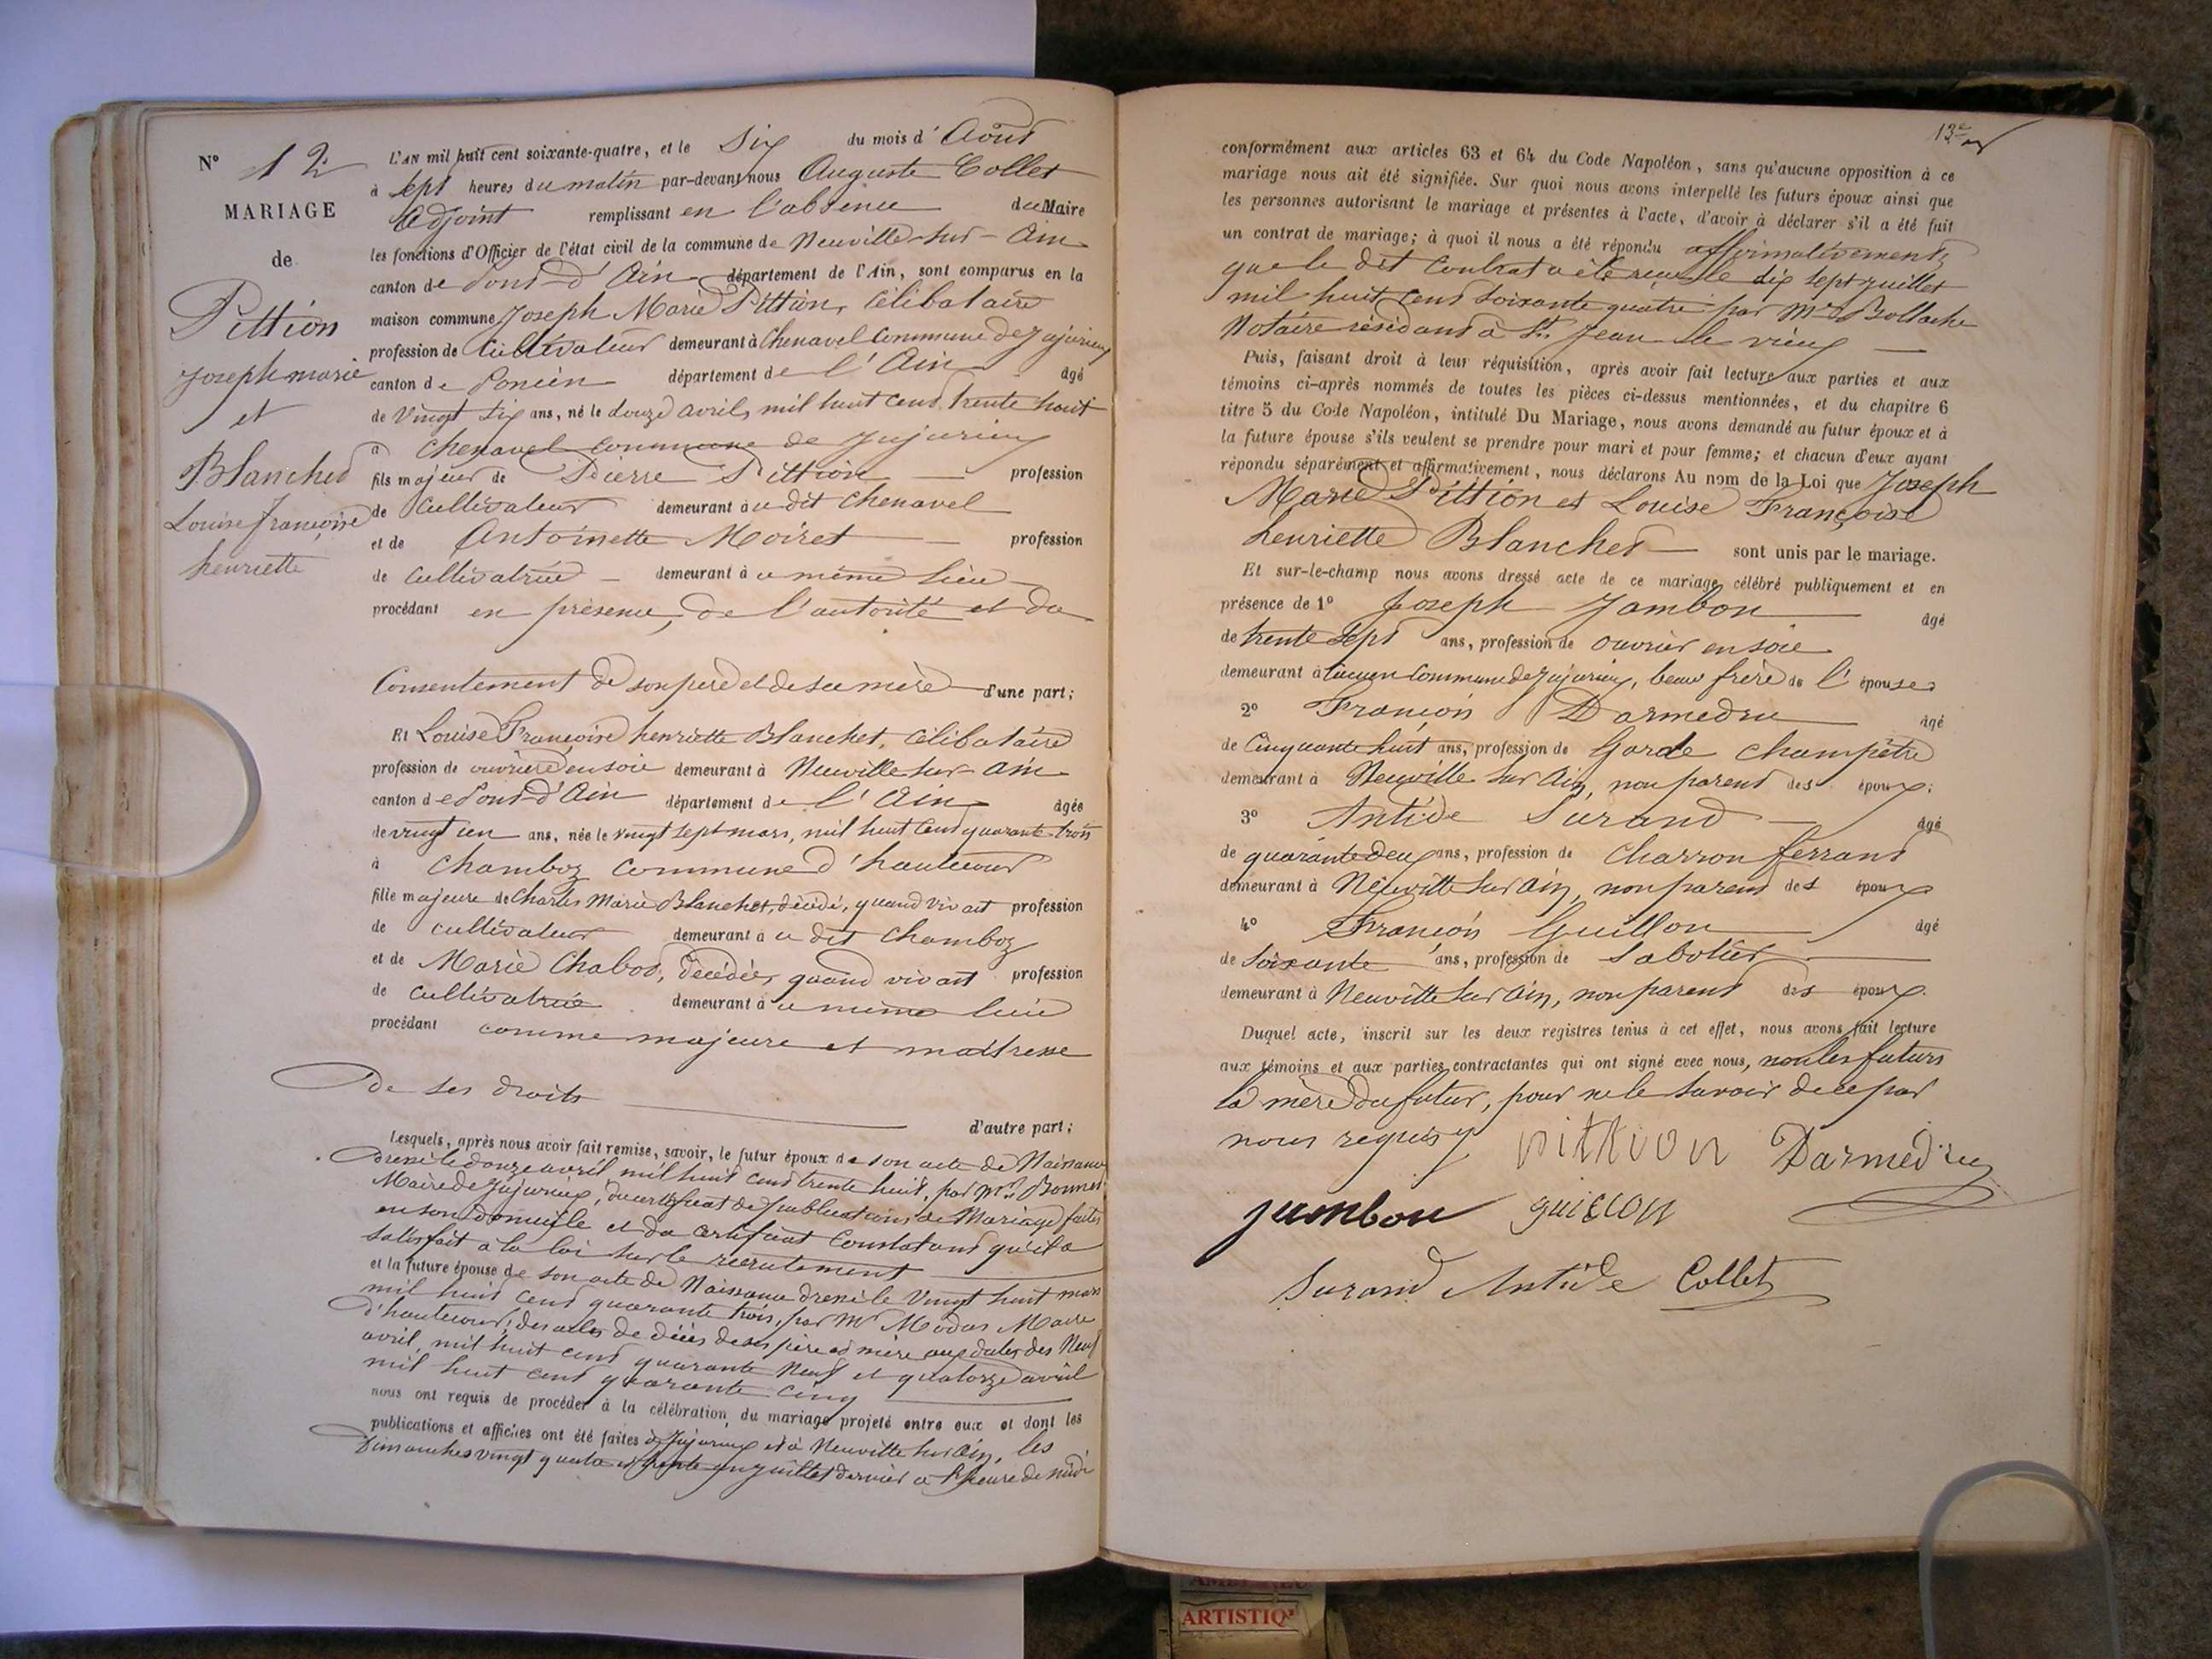 N° 12
MARIAGE
de
Pittion
Joseph marie
et
Blanchet
Louise françoise
henriette
L'AN mil huit cent soixante-quatre, et le Six du mois d'Août
à sept heures du matin par-devant nous Auguste Collet
Adjoint remplissant en l'absence du Maire
les fonctions d'Officier de l'état civil de la commune de Neuville-sur-Ain
canton de Pont-d'Ain département de l'Ain, sont comparus en la
maison commune Joseph Marie Pittion, célibataire
profession de Cultivateur demeurant à Chenavel Commune de Jujurieux
canton de Poncin département de l'Ain âgé
de Vingt six ans, né le douze avril, mil huit cent trente huit
à Chenavel commune de Jujurieux
fils majeur de Pierre Pittion profession
de Cultivateur demeurant au dit Chenavel
et de Antoinette Moiret profession
de cultivatrice demeurant au même lieu
procédant en présence, de l'autorité et du
Consentement de son père et de sa mère d'une part;
Et Louise Françoise henriette Blanchet, célibataire
profession de ouvrière en soie demeurant à Neuville sur Ain
canton de Pont-d'Ain département de l'Ain âgée
de vingt un ans, née le vingt sept mars, mil huit cent quarante-trois
à Chamboz commune d'hautecour
fille majeure de Charles Marie Blanchet, décédé, quand vivait profession
de cultivateur demeurant au dit Chamboz
et de Marie Chabod, décédée, quand vivait profession
de cultivatrice demeurant au même lieu
procédant comme majeure et maîtresse
de ses droits
d'autre part;
Lesquels, après nous avoir fait remise, savoir, le futur époux de son acte de Naissance
dressé le douze avril mil huit cent trente huit, par Mr Bonnet
Maire de Jujurieux, du certificat de publications de Mariage faites
en son domicile et du certificat Constatant qu'il a
satisfait à la loi sur le recrutement
et la future épouse de son acte de Naissance dressé le Vingt huit mars
mil huit cent quarante trois, par Mr Modas Maire
d'hautecour; des actes de décès de ses père et mère aux dates des Neuf
avril, mil huit cent quarante Neuf et quatorze avril
mil huit cent quarante cinq
nous ont requis de procéder à la célébration du mariage projeté entre eux et dont les
publications et affiches ont été faites à Jujurieux et à Neuville sur Ain, les
Dimanches vingt quatre et trente un juillet dernier à l'heure de midi
13e
conformément aux articles 63 et 64 du Code Napoléon, sans qu'aucune opposition à ce
mariage nous ait été signifiée. Sur quoi nous avons interpellé les futurs époux ainsi que
les personnes autorisant le mariage et présentes à l'acte, d'avoir à déclarer s'il a été fait
un contrat de mariage; à quoi il nous a été répondu affirmativement,
que le dit Contrat a été reçu le dix sept juillet
mil huit cent soixante quatre par Mr Bollache
Notaire résidant à St Jean le vieux
Puis, faisant droit à leur réquisition, après avoir fait lecture aux parties et aux
témoins ci-après nommés de toutes les pièces ci-dessus mentionnées, et du chapitre 6
titre 5 du Code Napoléon, intitulé Du Mariage, nous avons demandé au futur époux et à
la future épouse s'ils veulent se prendre pour mari et pour femme; et chacun d'eux ayant
répondu séparément et affirmativement, nous déclarons Au nom de la Loi que Joseph
Marie Pittion et Louise Françoise
henriette Blanchet sont unis par le mariage.
Et sur-le-champ nous avons dressé acte de ce mariage célébré publiquement et en
présence de 1° Joseph Jambon âgé
de trente sept ans, profession de ouvrier en soie
demeurant à commune de Jujurieux, beau frère de l'épouse
2° François Darmedru âgé
de Cinquante huit ans, profession de Garde champêtre
demeurant à Neuville sur Ain, non parent des époux;
3° Antide Surand âgé
de quarante deux ans, profession de Charron ferrant
demeurant à Neuville sur Ain, non parent des époux
4° François Guillon âgé
de soixante ans, profession de Sabotier
demeurant à Neuville sur Ain, non parent des époux.
Duquel acte, inscrit sur les deux registres tenus à cet effet, nous avons fait lecture
aux témoins et aux parties contractantes qui ont signé avec nous, non les futurs
la mère du futur, pour ne le savoir de ce par
nous requis
pittion Darmedru
jambon guillon
Surand Antide Collet
ARTISTIQ